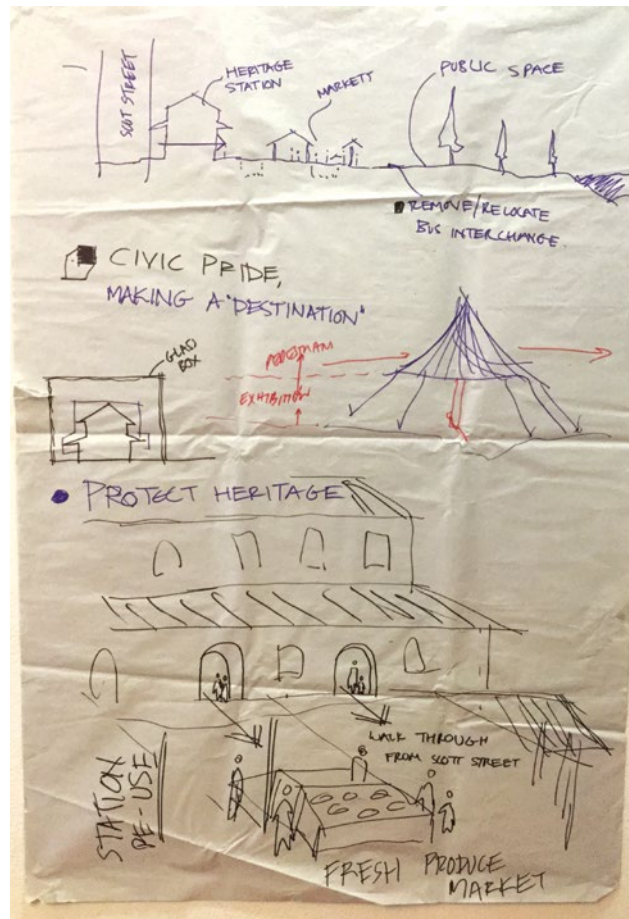 SCOT STREET
HERITAGE
STATION
MARKETT
PUBLIC SPACE
REMOVE/RELOCATE
BUS INTERCHANGE.
CIVIC PRIDE,
MAKING A "DESTINATION"
GLASS
BOX
PEDESTRIAN
EXHIBITION
PROTECT HERITAGE
WALK THROUGH
FROM SCOTT STREET
STATION
RE-USE
FRESH PRODUCE
MARKET